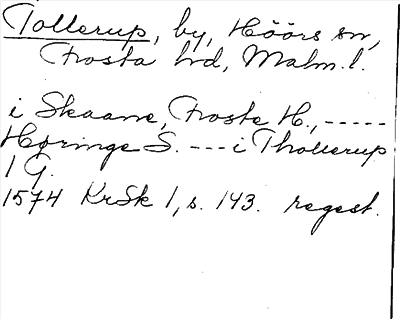 Tollerup, by, Höörs sn,
Frosta hd, Malm. l.
i Skaane, Froste H., -----
Høringe S. --- i Thollerup
1 G.
1574 KrSk 1, s. 143. regest.